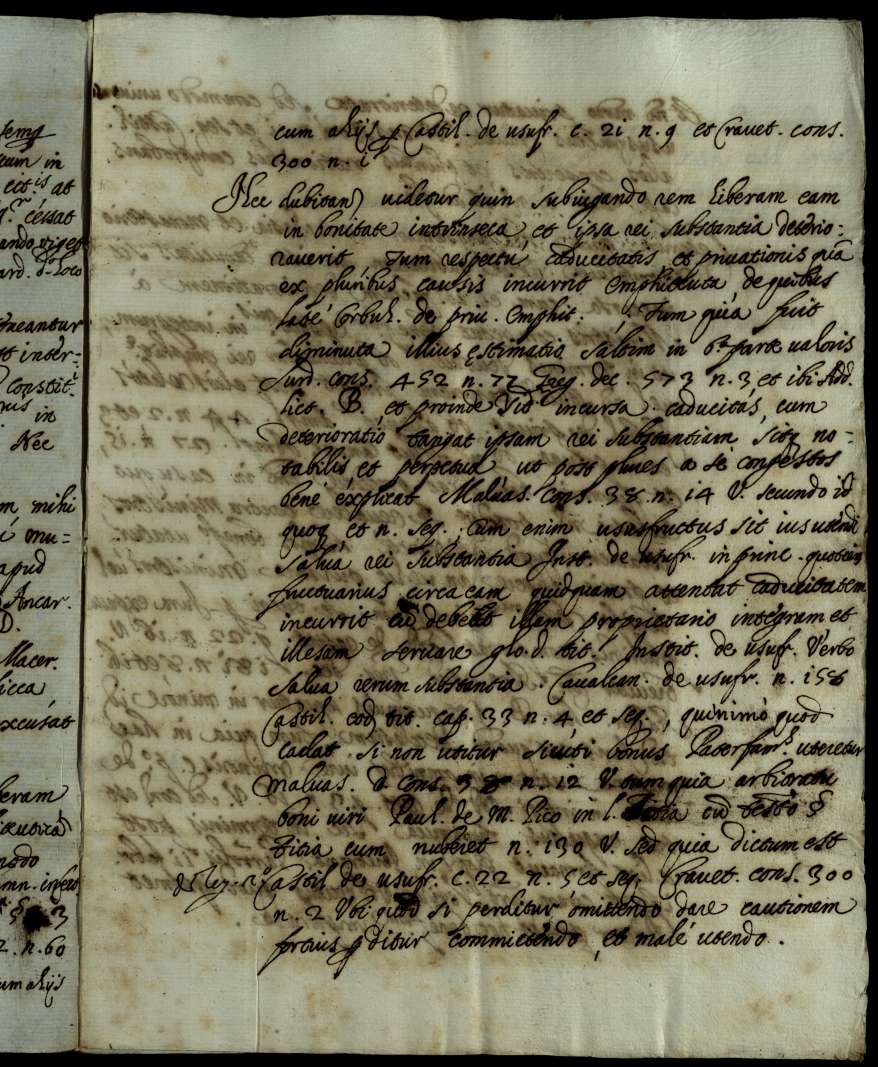 semp
eum in
ecit.s at
cessat
ando viget
ard. d. loco
tineantur
st inter-
constit.
in
Nec
m mihi
i mu=
apud
Ancar.
D.
Macer.
icca
xcusat
beram
modo
§ 3
2. n. 60
um alijs
cum alijs p Castil. de usufr. c. 21 n. 9 et Cravet. cons.
300 n. i
Nec dubitand videtur quin subiugando rem liberam eam
in bonitate intrinseca et ipsa rei substantia deterio=
raverit Tum respectu caducitatis et privationis quia
ex pluribus causis incurrit emphiteuta de quibus
late Corbul. de priv. emphit: Tum quia fuit
diminuta illius estimatio saltim in 6.a parte valoris
Surd. cons. 452 n. 77 Greg. dec. 573 n. 3 et ibi Add.
lict. B. et proinde Vid incursa caducitas, cum
deterioratio tangat ipsam rei substantiam sitq no=
tabilis et perpetua ut post plures a se congestos
bene explicat Malvas. cons. 38 n. 14 V. secundo id
quoq et n. seq., cum enim ususfructus sit ius utendi
salva rei substantia Inst. de usufr. in princ. quotiens
fructuarius circa eam quidquam attentat caducitatem
incurrit cum debeat illam proprietario integram et
illesam servare glo. d. tit. Instit. de usufr. Verbo
salva rerum substantia. Cavalcan. de usufr. n. 158
Castil. eod tit. cap. 33 n. 4 et seq., quinimo quod
cadat si non utitur sicuti bonus Paterfam.s uteretur
malvas. d. cons. 38 n. 12 V. tum quia arbitratu
boni viri Paul. de M. Pico in l. Titia cum testo §
Titia cum nuberet n. 130 V. sed quia dictum est
Castil de usufr. c. 22 n. 5 et seq. Cravet. cons. 300
n. 2 Ubi quod si perditur omittendo dare cautionem
fortius pditur committendo, et male utendo.